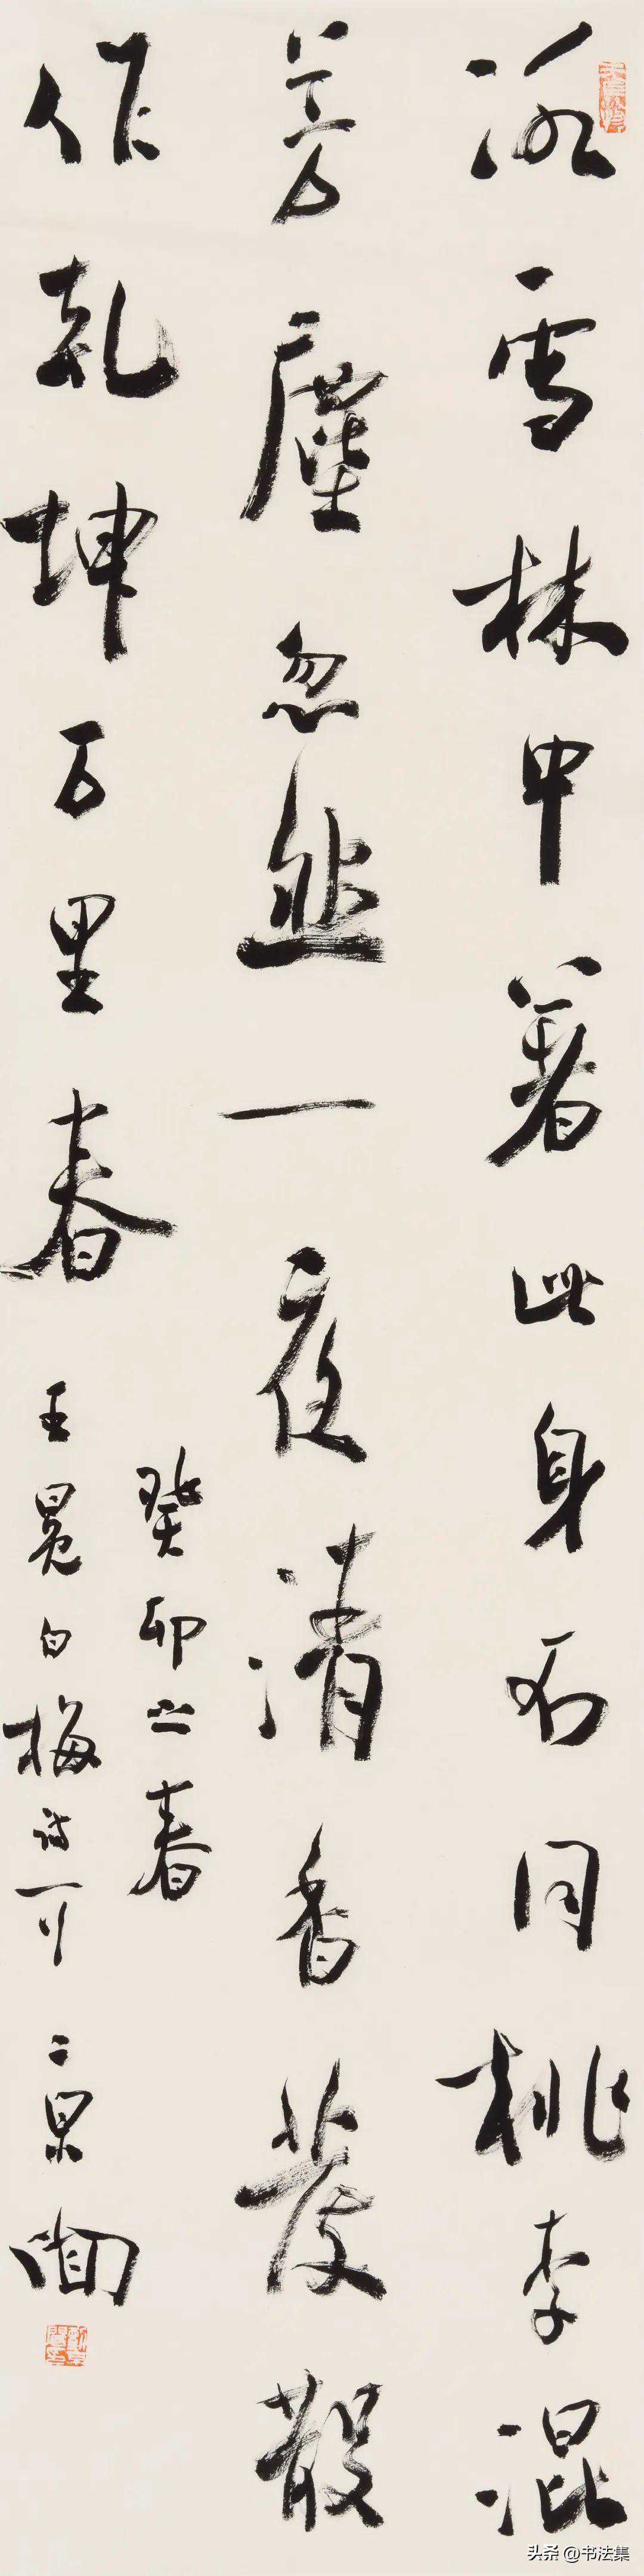 冰雪林中著此身不同桃李混
芳塵忽然一夜清香發散
作乾坤万里春
癸卯之春
王冕白梅詩 京聞
头条 @书法集